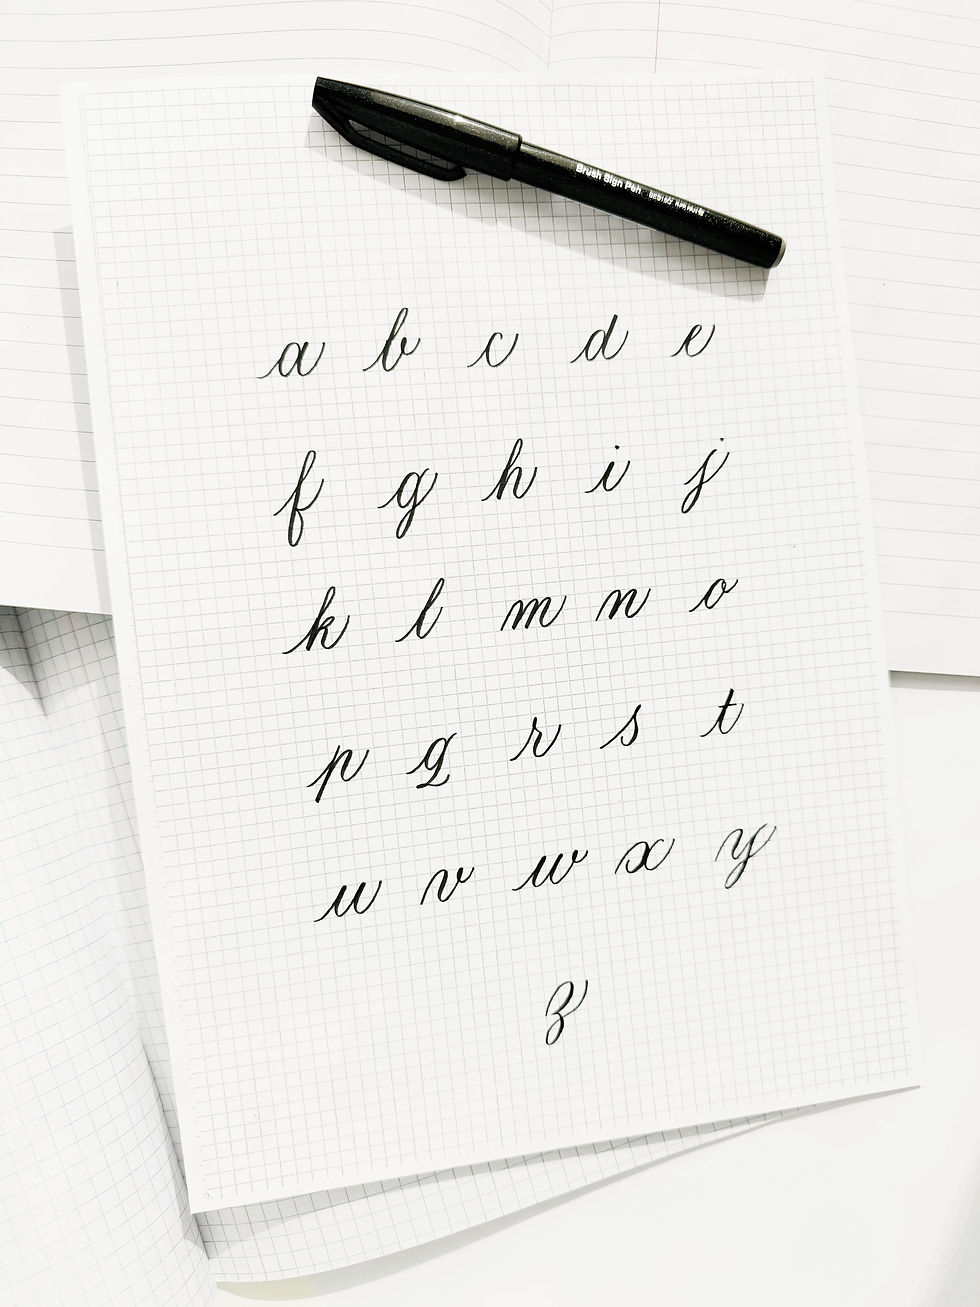 Brush Sign Pen
a b c d e
f g h i j
k l m n o
p q r s t
u v w x y
z